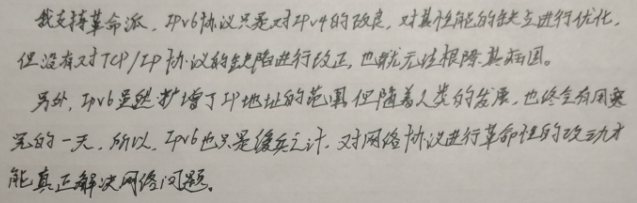 我支持革命派,IPv6协议只是对IPv4的改良,对其性能的缺点进行优化,
但没有对TCP/IP协议的缺陷进行改正,也就无法根除其病因。
另外,IPv6虽然扩增了IP地址的范围,但随着人类的发展,也终会有用完
完的一天,所以,IPv6也只是缓兵之计,对网络协议进行革命性的改动才
能真正解决网络问题。